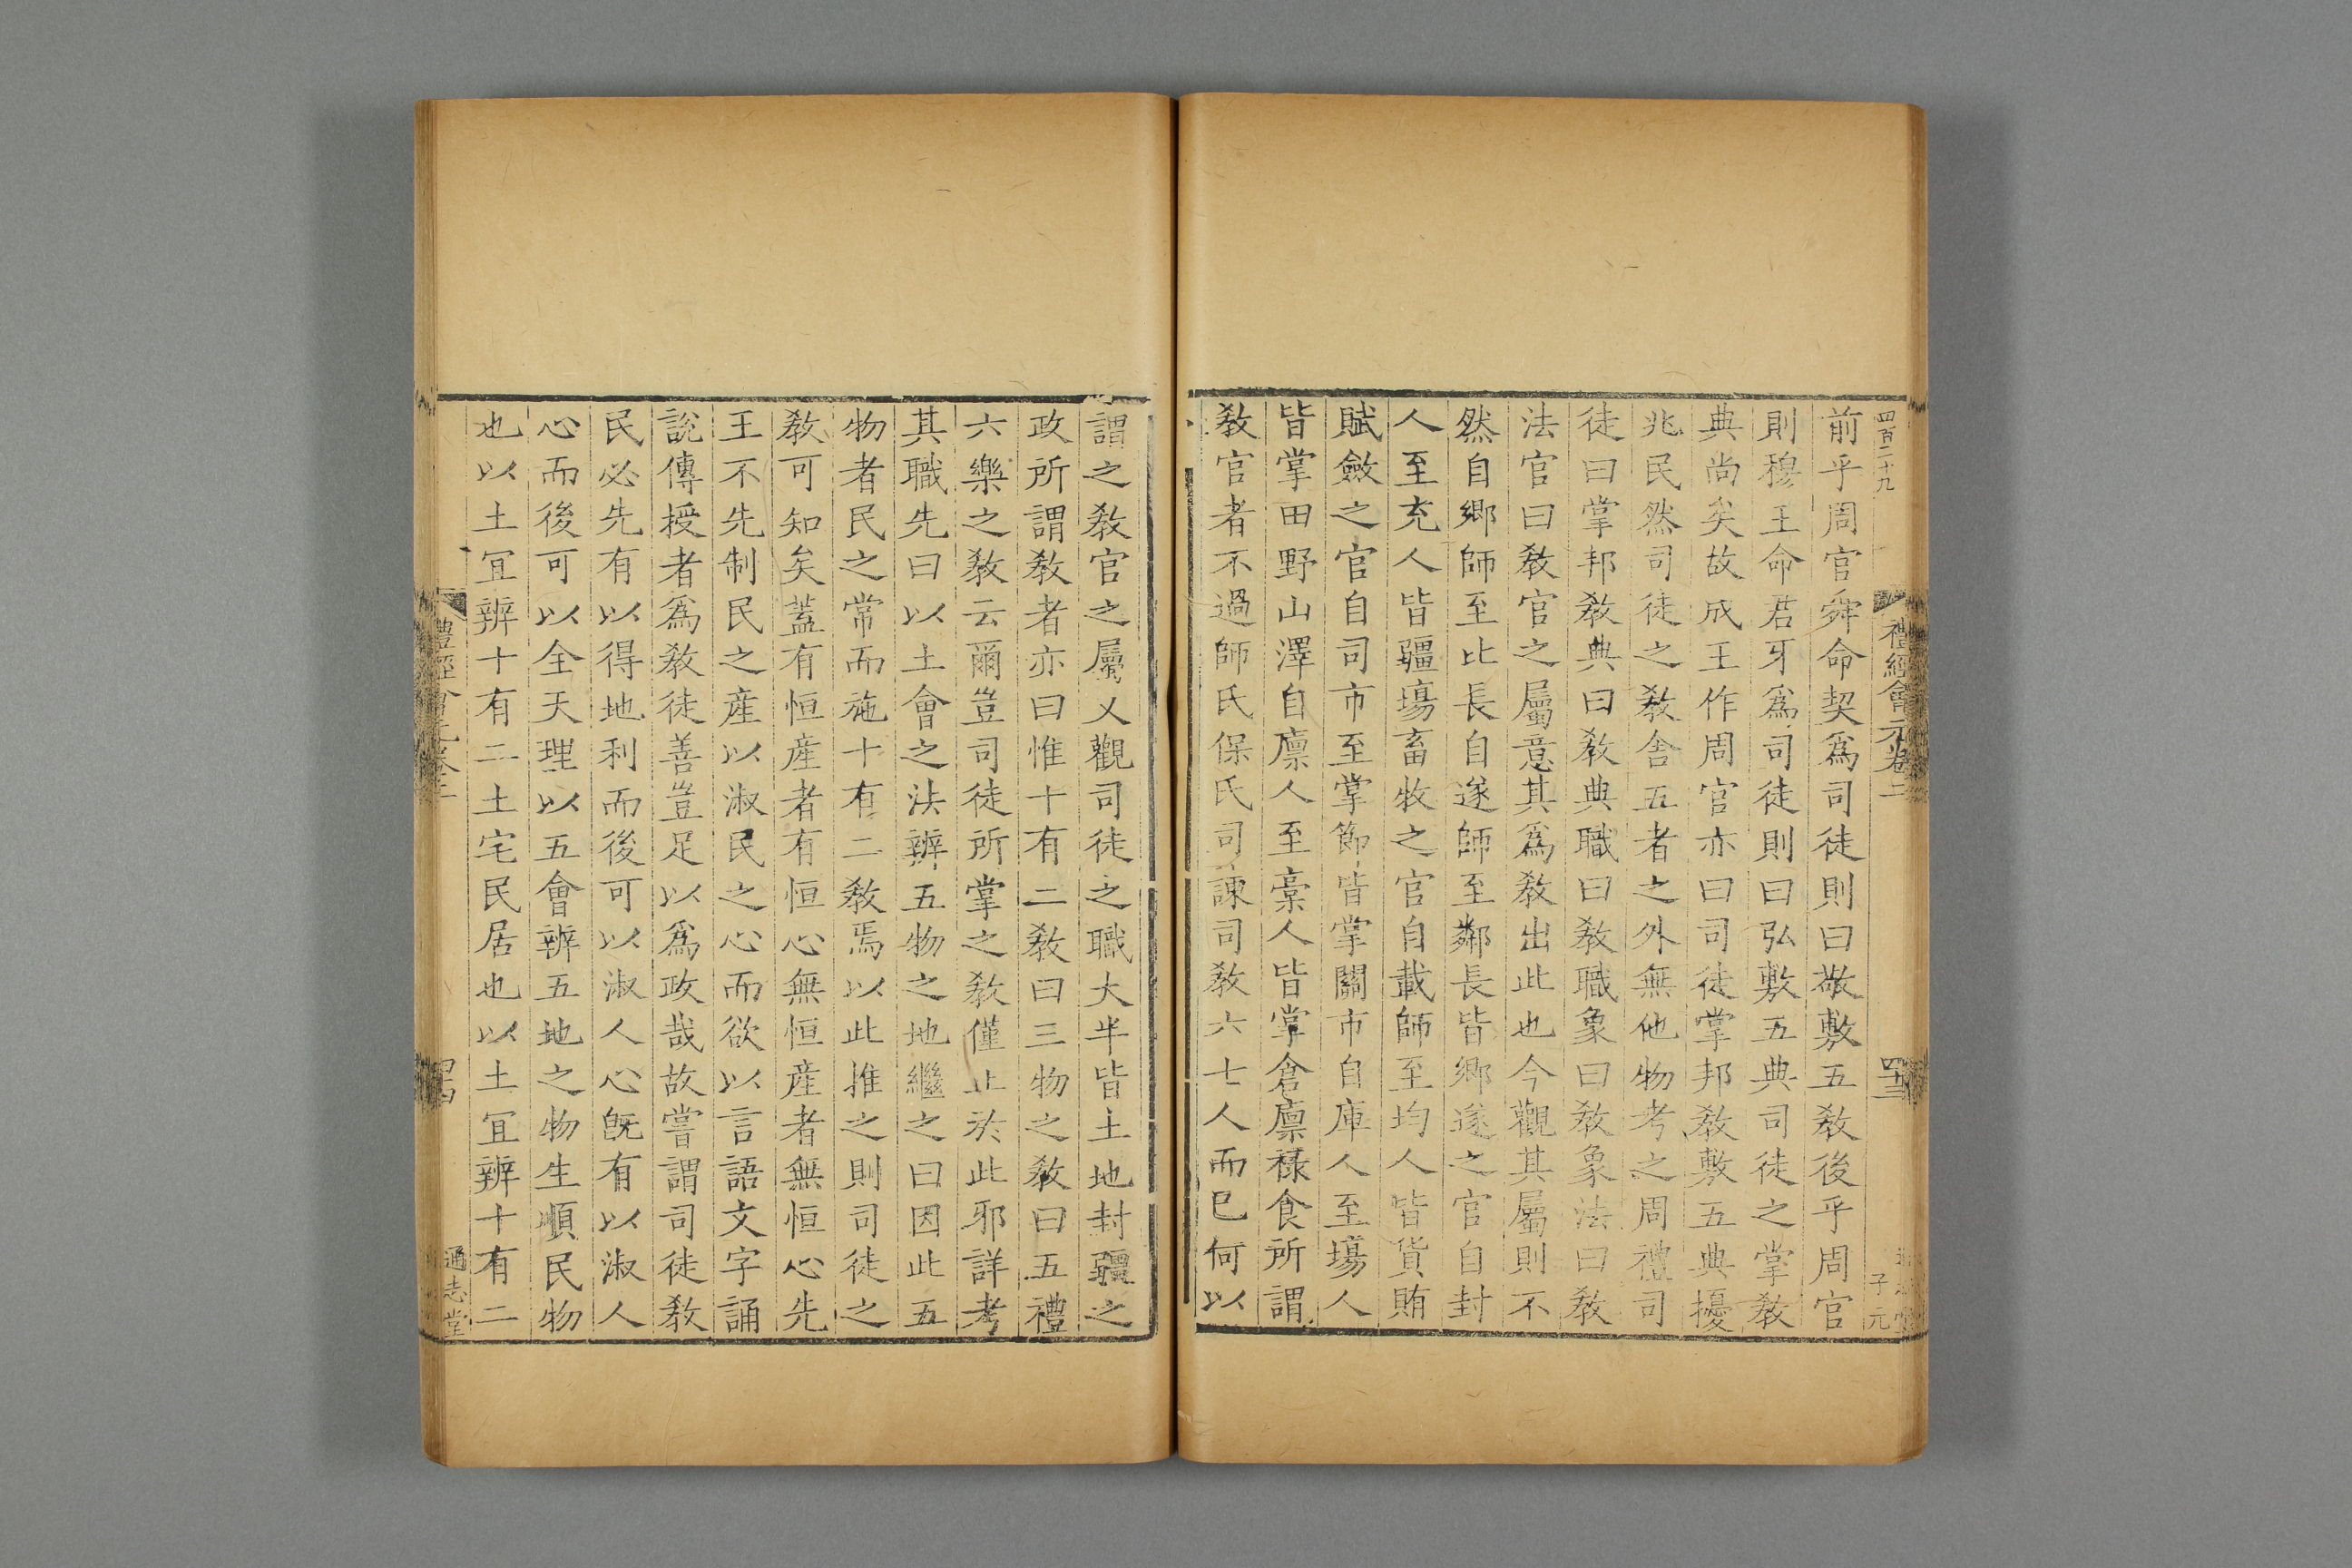 四百二十九
禮經會元卷二
子元
前乎周官舜命契爲司徒則曰敬敷五敎後乎周官
則穆王命君牙爲司徒則曰弘敷五典司徒之掌敎
典尚矣故成王作周官亦曰司徒掌邦敎敷五典擾
兆民然司徒之敎舍五者之外無他物考之周禮司
徒曰掌邦敎典曰敎典職曰敎職象曰敎象法曰敎
法官曰敎官之屬意其爲敎出此也今觀其屬則不
然自鄉師至比長自遂師至鄰長皆鄉遂之官自封
人至充人皆疆場畜牧之官自載師至均人皆貨賄
賦斂之官自司市至掌節皆掌關市自庫人至場人
皆掌田野山澤自廩人至槀人皆掌倉廩祿食所謂
敎官者不過師氏保氏司諫司敎六七人而已何以
謂之敎官之屬又觀司徒之職大半皆土地封疆之
政所謂敎者亦曰惟十有二敎曰三物之敎曰五禮
六樂之敎云爾豈司徒所掌之敎僅止於此邪詳考
其職先曰以土會之法辨五物之地繼之曰因此五
物者民之常而施十有二敎焉以此推之則司徒之
敎可知矣蓋有恒產者有恒心無恒產者無恒心先
王不先制民之產以淑民之心而欲以言語文字誦
說傳授者爲敎徒善豈足以爲政哉故嘗謂司徒敎
民必先有以得地利而後可以淑人心旣有以淑人
心而後可以全天理以五會辨五地之物生順民物
也以土宜辨十有二土宅民居也以土宜辨十有二
通志堂